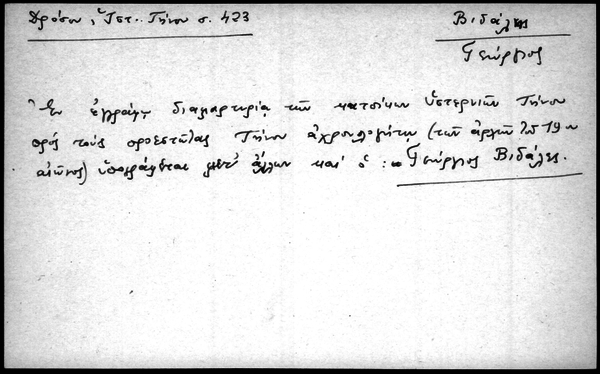 Δρόσου, Ἱστ. Τήνου σ. 423
Βιδάλης
Γεώργιος
Ἐν ἐγγράφῳ διαμαρτυρίᾳ τῶν κατοίκων Ὑστερνιῶν Τήνου
πρός τούς προεστῶτας Τήνου ἀχρονολογήτῳ (τῶν ἀρχῶν τοῦ 19ου
αἰῶνος) ὑπογράφεται μετ' ἄλλων καί ὁ :- Γεώργιος Βιδάλης.